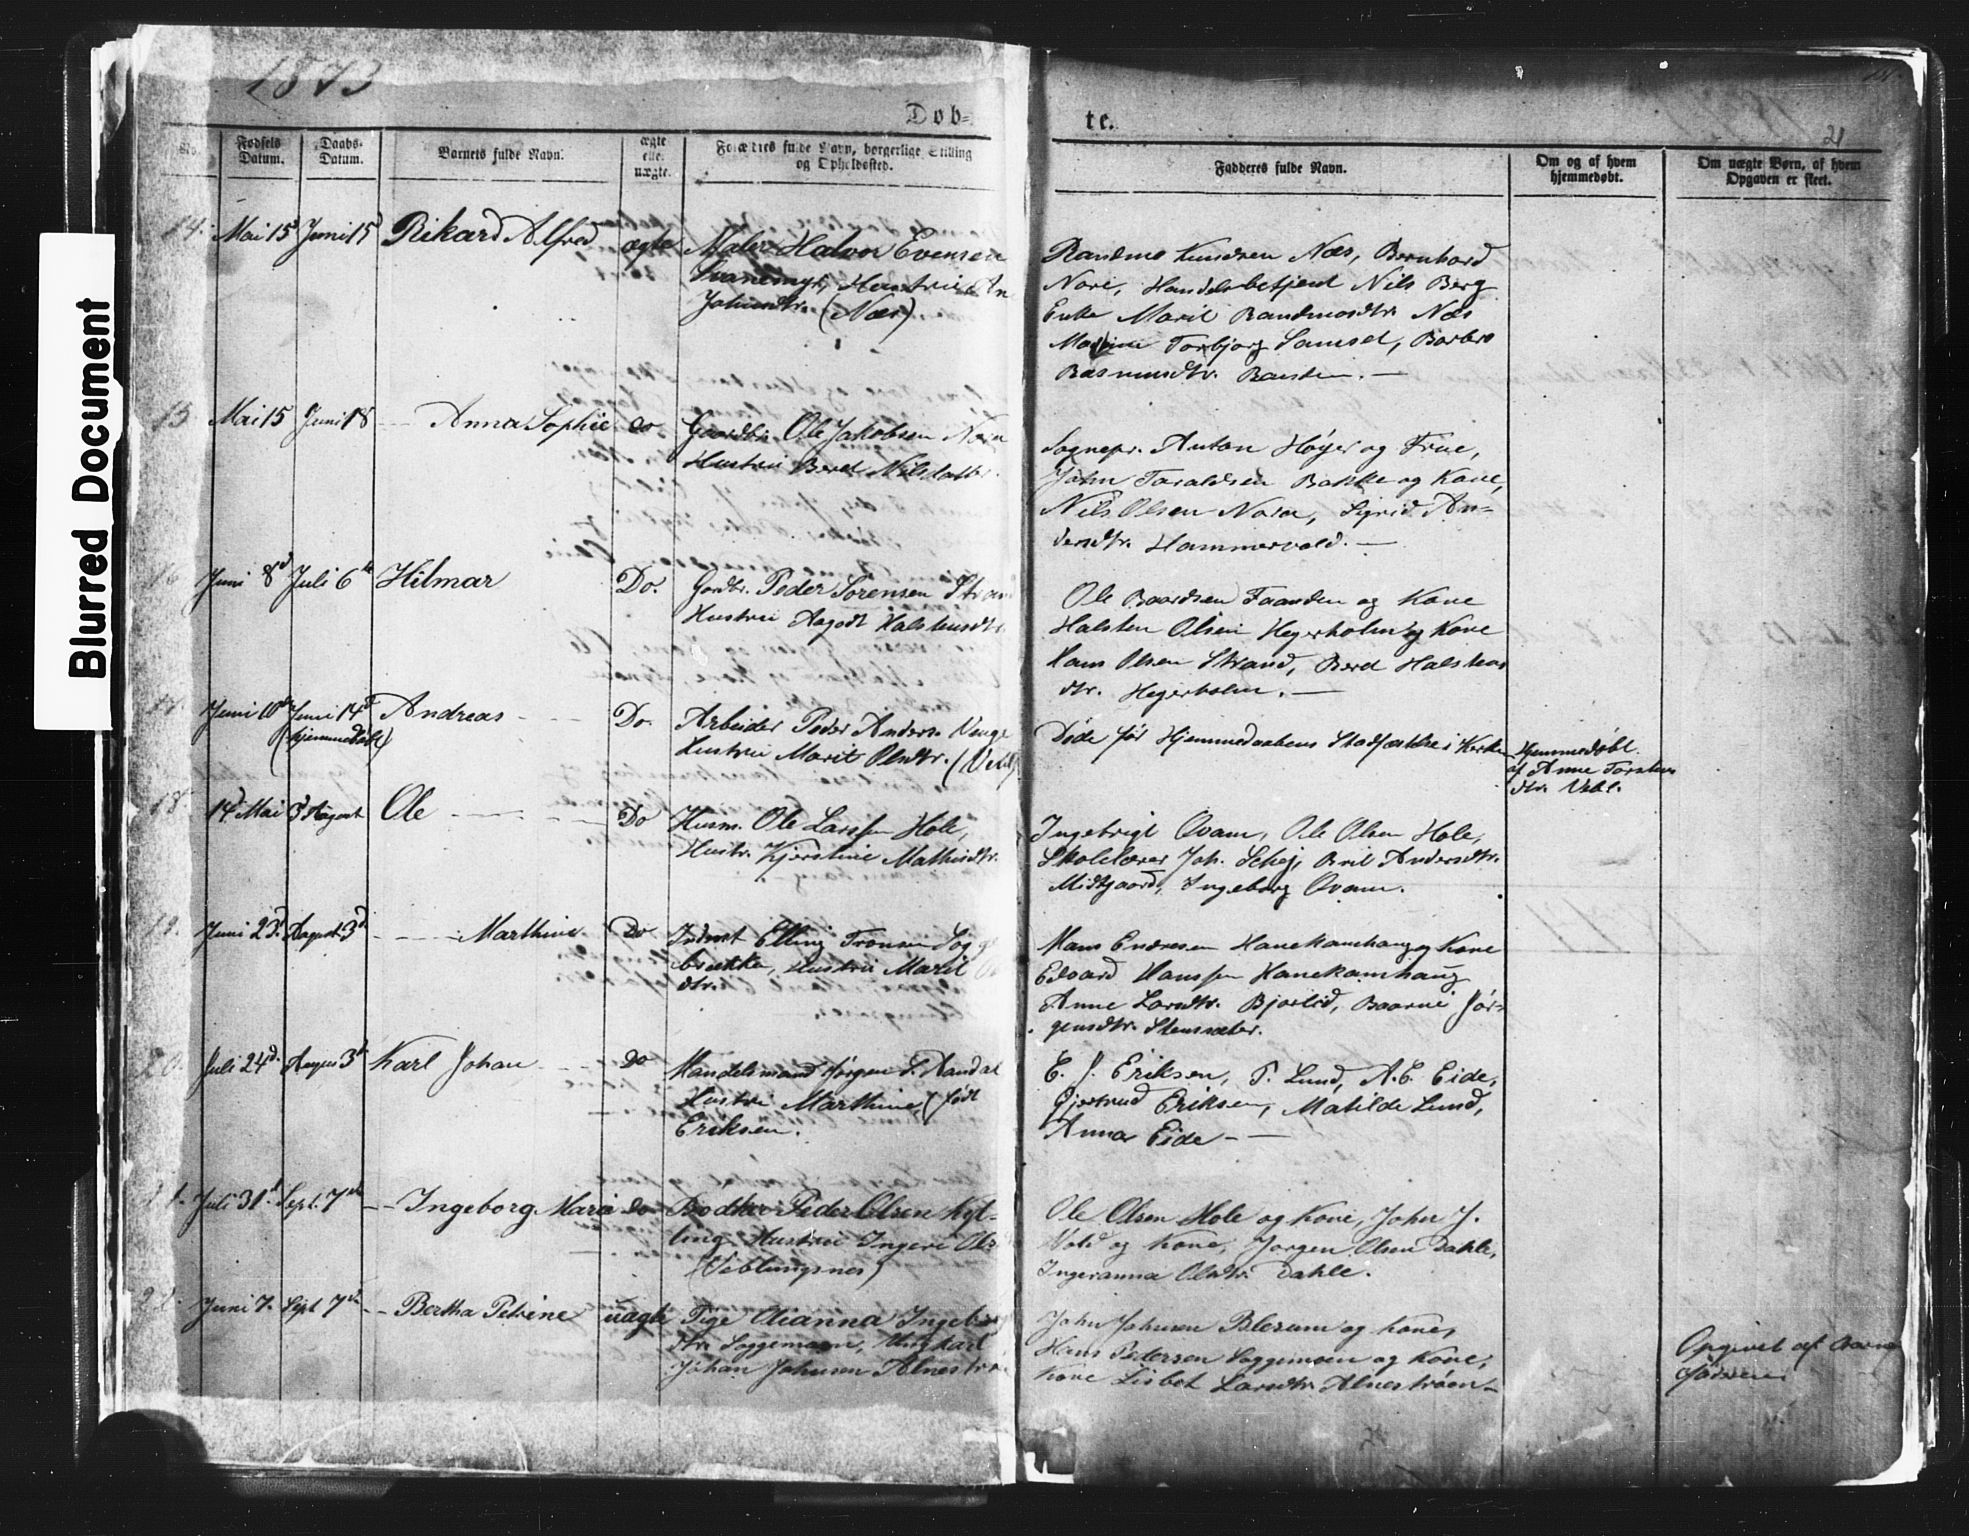 Blurred Document
1873
Døb-
te.
21
No.
Fødsels Datum.
Daabs-Datum.
Barnets fulde Navn.
ægte eller uægte.
Forældres fulde Navn, borgerlige Stilling og Opholdssted.
Fadderes fulde Navn.
Om og af hvem hjemmedøbt.
Om uægte Børn, af hvem Opgaven er skeet.
14. Mai 15 Juni 15 Rikard Alfred ægte Maler Halvor Evensen
Svanemyr, Hustrue
Johnsdtr. (Næs)
Randmo Knudsen Næs, Bernhard
Nore, Handelsbetjent Nils Berg
Enke Marit Randmosdtr. Næs
Torbjørg Samset, Barbro
Rasmusdtr.
15 Mai 15 Juni 18 Anna Sophie do Gaardbr. Ole Jakobsen
Hustrue Beret Nilsdatter.
Sognepr. Anton Høyer og Frue,
John Taraldsen Bakke og Kone,
Nils Olsen Nora, Sigrid An-
dersdtr. Hammervold. —
16 Juni 8d Juli 6te Hilmar Do. Gardbr. Peder Sørensen
Hustrue Aagodt Halstensdtr
Ole Baardsen Faanden og Kone
Halsten Olsen Hegerholm og Kone
Hans Olsen Strand, Beret Halstens
dtr. Hegerholm. —
17. Juni 10 Juni 14d Andreas Do Arbeider Peder Anders. Venge
(hjemmedøbt)
Hustrue Marit Olsdtr.
Døde før Hjemmedaabens Stadfæstelse i Kirken
Hjemmedøbt
af Anne Torstens
dtr. Vebl.
18 14 Mai 3 August Ole Do Husm. Ole Larssen Hole,
Hustr. Kjerstine Mathisdtr.
Ingebrigt Qvam, Ole Olsen Hole,
Skolelærer Joh. Schej, Brit Andersdtr.
Midtgaard, Ingeborg Qvam.
19. Juni 23d August 3d Marthine Do Inderst Elling Tronsen
brække, Hustrue Marit
dtr.
Hans Endresen Hanekamhaug og Kone
Edvard Hanssen Hanekamhaug
Anne Larsdtr. Bjorlid, Jør-
gensdtr. Stensæter.
20. Juli 24d. August 3d Karl Johan do Handelsmand Jørgen L. Aandal
Hustrue Marthine (født
Eriksen.
E. J. Eriksen, P. Lund, A. E. Eide,
Gjertrud Eriksen, Matilde Lund,
Anna Eide —
21. Juli 31d Sept. 7de Ingeborg Maria do Bødker Peder Olsen Kyl-
ling Hustrue Ingeri Ols
(Veblungsnes)
Ole Olsen Hole og Kone, John J.
Vold og Kone, Jørgen Olsen Dahle,
Ingeranna Olsdtr. Dahle.
22. Juni 7. Sept 7de Bertha Petrine uægte Pige Olianna
dtr. Soggemoen, Ungkarl
Johan Johnsen
John Johnsen Blesum og Kone,
Hans Pedersen Soggemoen og Kone,
Kone Lisbet Larsdtr. Alnestrøen —
Opgivet af Barne
fødersken